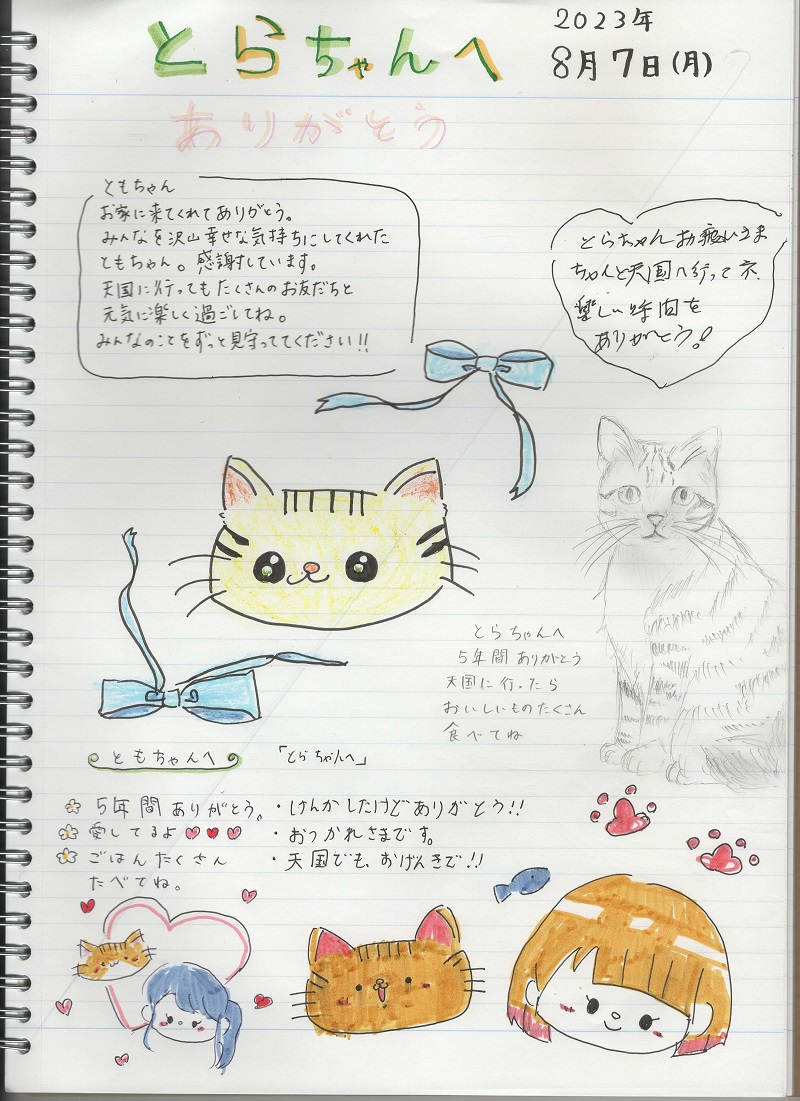 とらちゃんへ
2023年
8月7日(月)
ありがとう
ともちゃん
お家に来てくれてありがとう。
みんなを沢山幸せな気持ちにしてくれた
ともちゃん。感謝しています。
天国に行ってもたくさんのお友だちと
元気に楽しく過ごしてね。
みんなのことをずっと見守っててください!!
とらちゃんお疲れさま
ちゃんと天国へ行って
楽しい時間を
ありがとう!
とらちゃんへ
5年間ありがとう
天国に行ったら
おいしいものたくさん
食べてね
ともちゃんへ
5年間ありがとう。
愛してるよ
ごはんたくさん
たべてね。
「とらちゃんへ」
・けんかしたけどありがとう!!
・おつかれさまです。
・天国でも、おげんきで!!